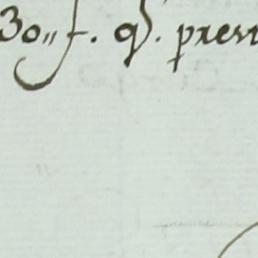 30„ f. q). prest